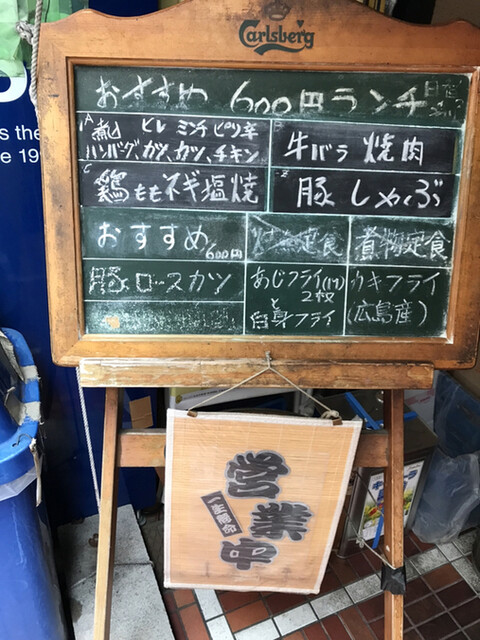 Carlsberg
おすすめ 600円ランチ
A 煮込 ヒレ ミンチ ピリ辛
ハンバグ、カツ、カツ、チキン
B 牛バラ 焼肉
C 鶏ももネギ塩焼
豚しゃぶ
おすすめ 600円
定食
煮物定食
豚ロースカツ
あじフライ
2枚
と
白身フライ
カキフライ
(広島産)
営業中
一生懸命
s the
e 19